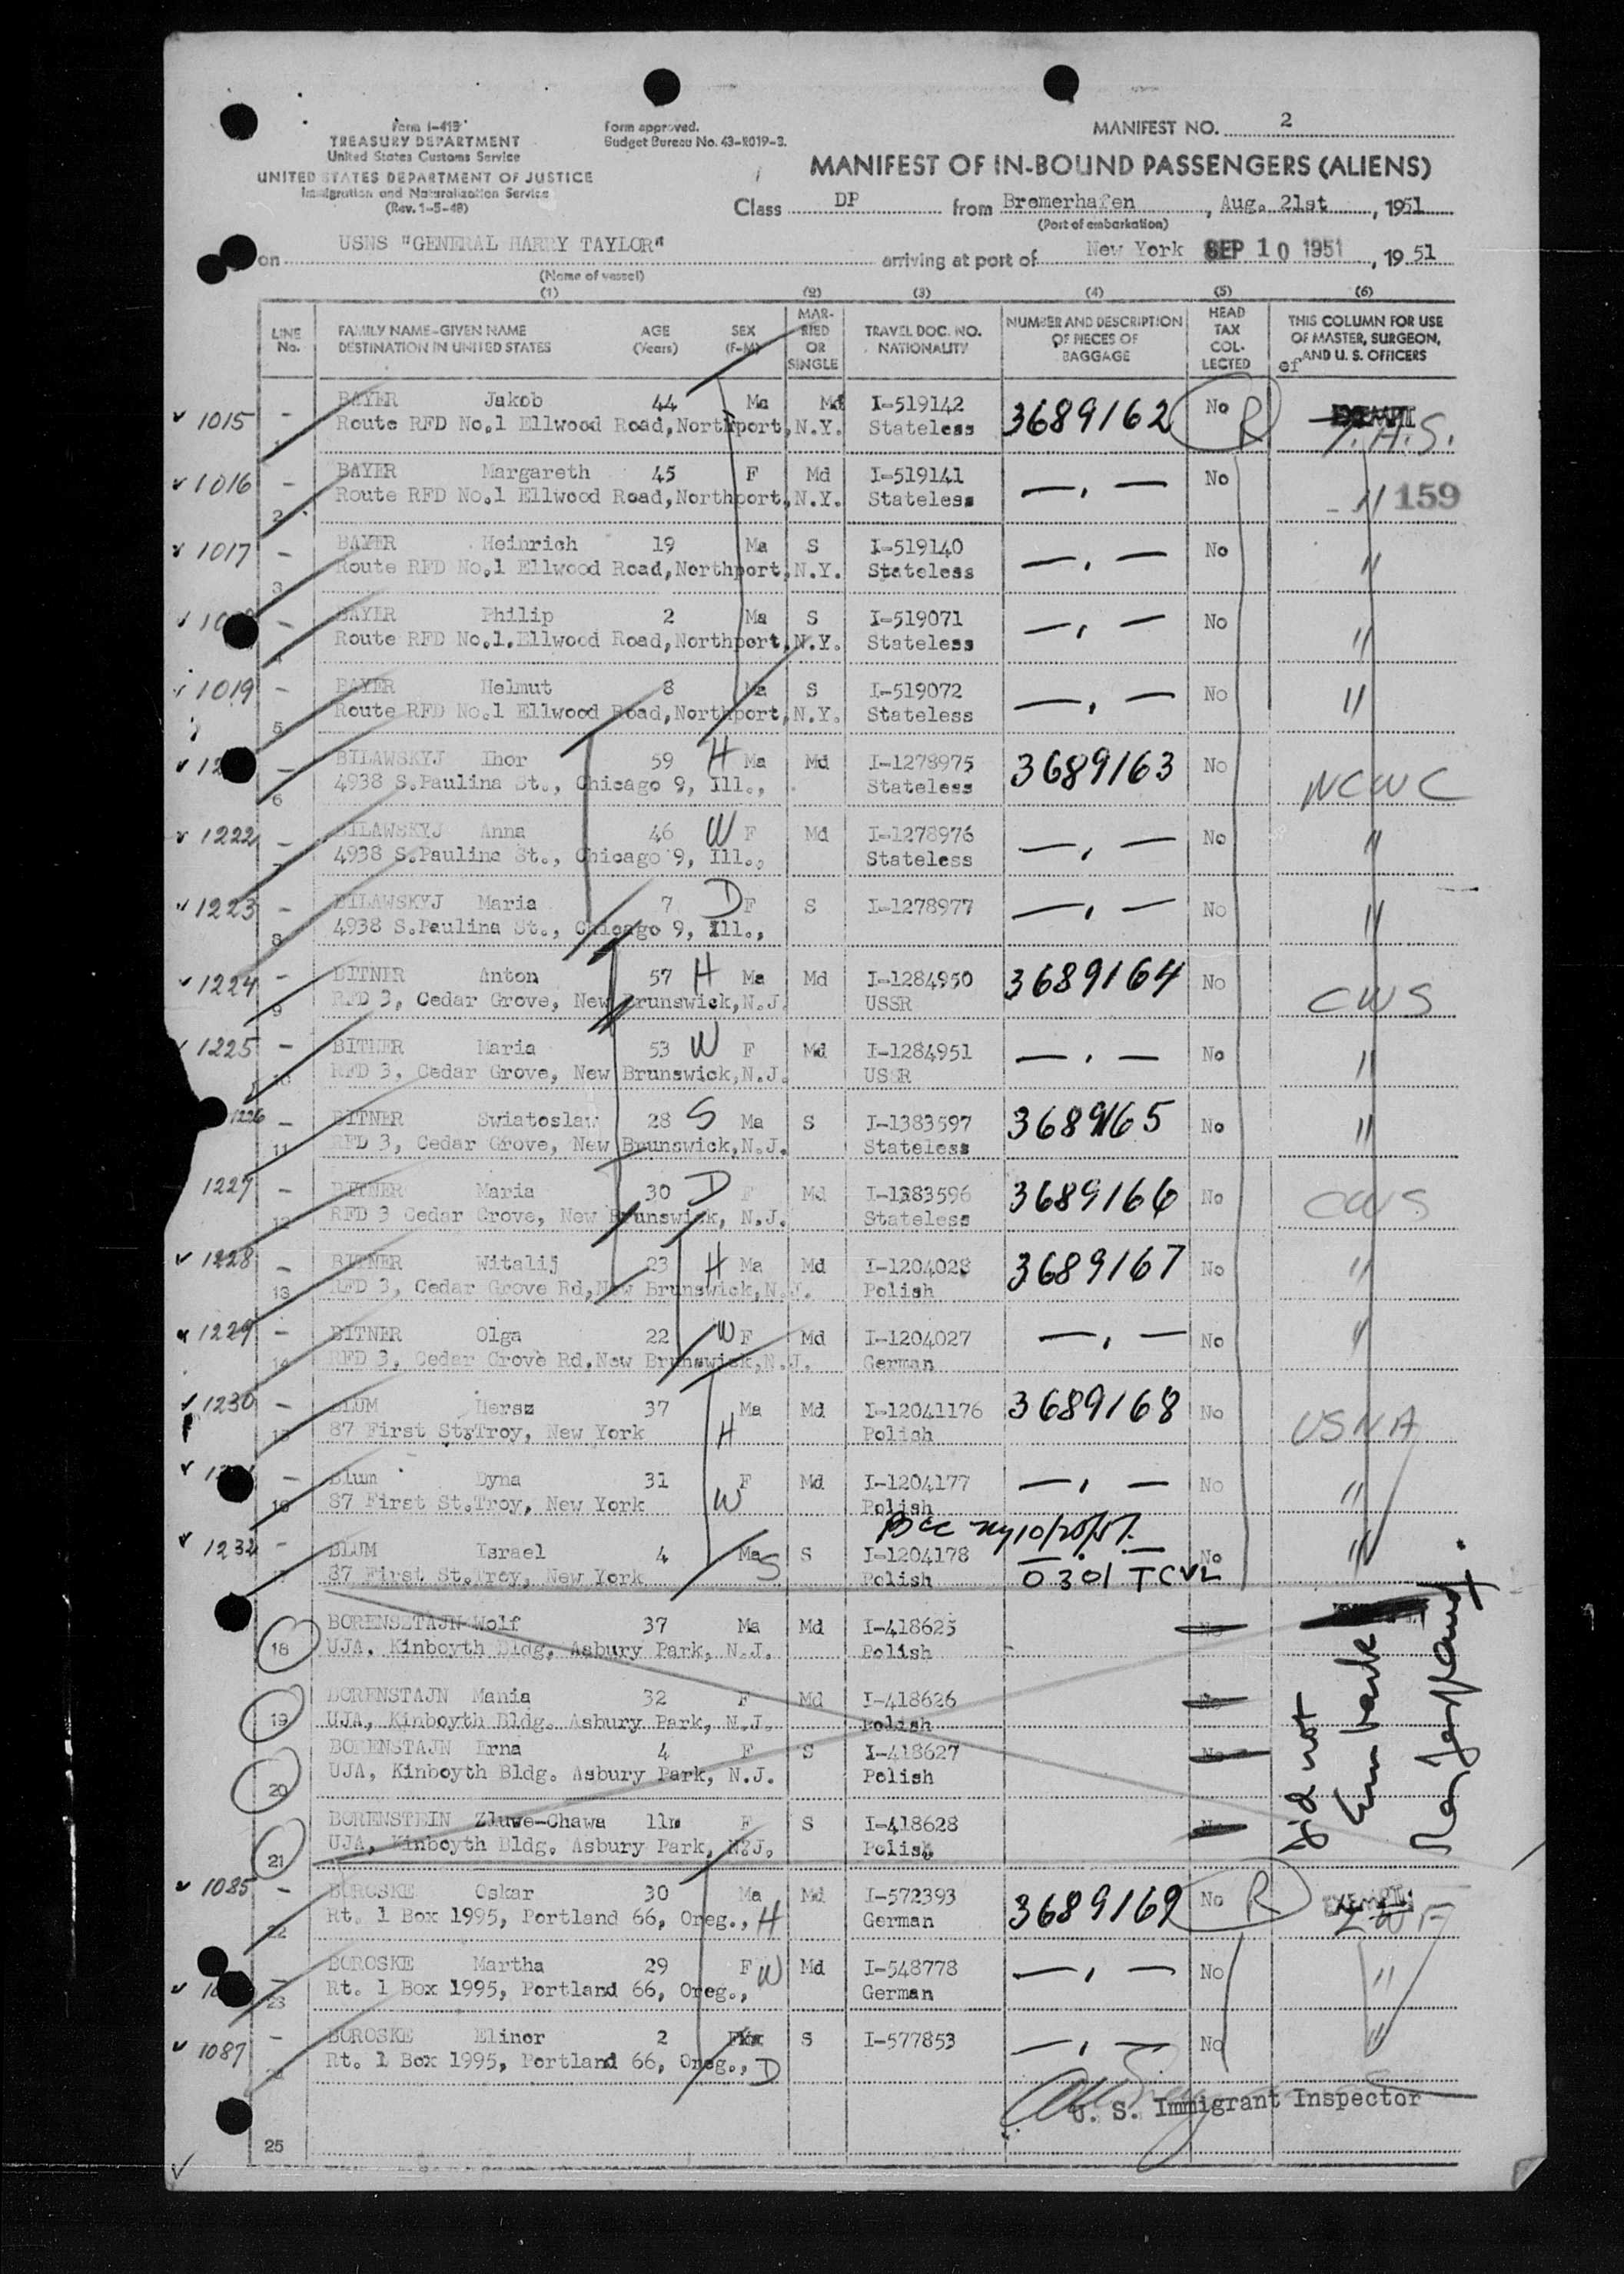 Form I-415
TREASURY DEPARTMENT
United States Customs Service
UNITED STATES DEPARTMENT OF JUSTICE
Immigration and Naturalization Service
(Rev. 1-5-48)
Form approved.
Budget Bureau No. 43-R019-3.
MANIFEST NO. 2
MANIFEST OF IN-BOUND PASSENGERS (ALIENS)
Class DP from Bremerhafen, Aug. 21st, 1951
(Port of embarkation)
on USNS "GENERAL HARRY TAYLOR" arriving at port of New York SEP 10 1951, 1951
(Name of vessel)
(1) (2) (3) (4) (5) (6)
LINE No. FAMILY NAME-GIVEN NAME DESTINATION IN UNITED STATES AGE (Years) SEX (F-M) MARRIED OR SINGLE TRAVEL DOC. NO. NATIONALITY NUMBER AND DESCRIPTION OF PIECES OF BAGGAGE HEAD TAX COLLECTED THIS COLUMN FOR USE OF MASTER, SURGEON, AND U. S. OFFICERS
1015 - BAYER Jakob 44 Ma Md I-519142 3689162 No R EXEMPT
1 Route RFD No.1 Ellwood Road, Northport, N.Y. Stateless
1016 - BAYER Margareth 45 F Md I-519141 -.- No
2 Route RFD No.1 Ellwood Road, Northport, N.Y. Stateless " 159
1017 - BAYER Heinrich 19 Ma S I-519140 -.- No "
3 Route RFD No.1 Ellwood Road, Northport, N.Y. Stateless
- BAYER Philip 2 Ma S I-519071 -.- No "
4 Route RFD No.1.Ellwood Road, Northport, N.Y. Stateless
1019 - BAYER Helmut 8 Ma S I-519072 -.- No "
5 Route RFD No.1 Ellwood Road, Northport, N.Y. Stateless
- BILAWSKYJ Ihor 59 H Ma Md I-1278975 3689163 No NCWC
6 4938 S.Paulina St., Chicago 9, Ill., Stateless
1222 - BILAWSKYJ Anna 46 W F Md I-1278976 -.- No "
7 4938 S.Paulina St., Chicago 9, Ill., Stateless
1223 - BILAWSKYJ Maria 7 D F S I-1278977 -.- No "
8 4938 S.Paulina St., Chicago 9, Ill.,
1224 - BITNER Anton 57 H Ma Md I-1284950 3689164 No CWS
9 RFD 3, Cedar Grove, New Brunswick, N.J. USSR
1225 - BITNER Maria 53 W F Md I-1284951 -.- No "
10 RFD 3, Cedar Grove, New Brunswick, N.J. USSR
1226 - BITNER Swiatoslaw 28 S Ma S I-1383597 3689165 No "
11 RFD 3, Cedar Grove, New Brunswick, N.J. Stateless
1227 - BITNER Maria 30 D F Md I-1383596 3689166 No CWS
12 RFD 3 Cedar Grove, New Brunswick, N.J. Stateless
1228 - BITNER Witalij 23 H Ma Md I-1204028 3689167 No "
13 RFD 3, Cedar Grove Rd, New Brunswick, N.J. Polish
1229 - BITNER Olga 22 W F Md I-1204027 -.- No "
14 RFD 3, Cedar Grove Rd. New Brunswick, N.J. German
1230 - BLUM Hersz 37 Ma Md I-12041176 3689168 No USNA
15 87 First St. Troy, New York H Polish
- Blum Dyna 31 F Md I-1204177 -.- No "
16 87 First St. Troy, New York W Polish
1232 - BLUM Israel 4 Ma S S I-1204178 -.- No "
87 First St. Troy, New York Polish 0301 TCVL
BORENSETAJN Wolf 37 Ma Md I-418625 No
18 UJA, Kinboyth Bldg. Asbury Park, N.J. Polish
BORENSTAJN Mania 32 F Md I-418626 No
19 UJA, Kinboyth Bldg. Asbury Park, N.J. Polish
BORENSTAJN Erna 4 F S I-418627 No
20 UJA, Kinboyth Bldg. Asbury Park, N.J. Polish
BORENSTEIN Zluwe-Chawa 11m F S I-418628 No
21 UJA, Kinboyth Bldg. Asbury Park, N.J. Polish
did not
Embark
1085 - BOROSKE Oskar 30 Ma Md I-572393 3689169 No R EXEMPT
22 Rt. 1 Box 1995, Portland 66, Oreg., H German LWF
- BOROSKE Martha 29 F W Md I-548778 -.- No "
23 Rt. 1 Box 1995, Portland 66, Oreg., German
1087 - BOROSKE Elinor 2 S I-577853 -.- No "
Rt. 1 Box 1995, Portland 66, Oreg., D
U. S. Immigrant Inspector
25